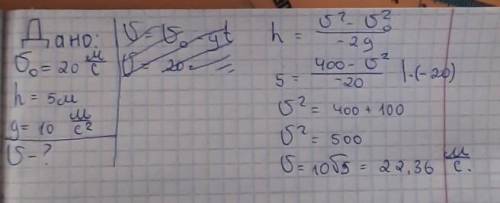 Дано:
υ₀ = 20 м/с
h = 5м
g = 10 м/с²
υ - ?
υ = υ₀ - gt
υ = 20 -
h = (υ² - υ₀²) / -2g
5 = (400 - υ²) / -20 | · (-20)
υ² = 400 + 100
υ² = 500
υ = 10√5 = 22,36 м/с.